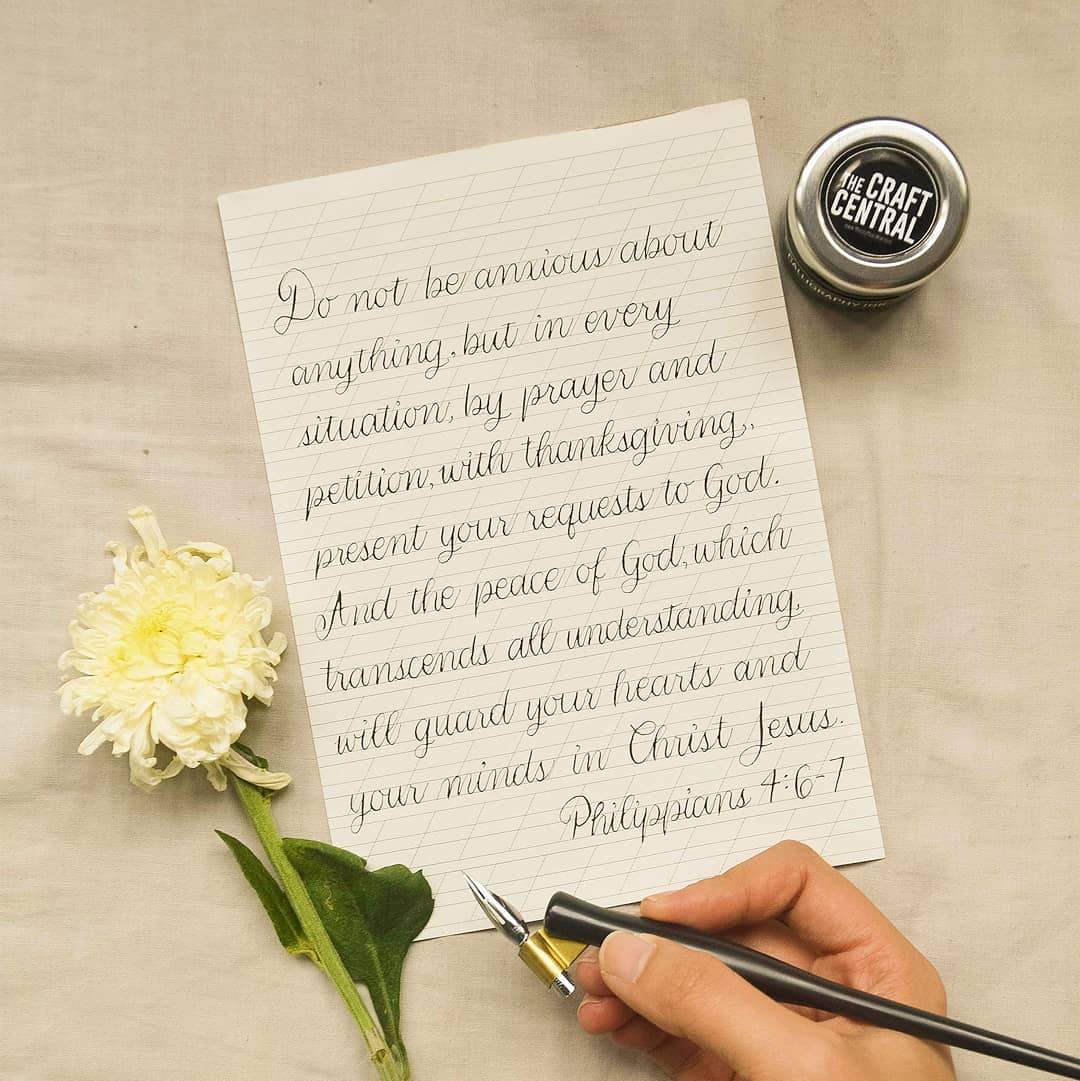 Do not be anxious about
anything, but in every
situation, by prayer and
petition, with thanksgiving,
present your requests to God.
And the peace of God, which
transcends all understanding,
will guard your hearts and
your minds in Christ Jesus.
Philippians 4:6-7
THE CRAFT
CENTRAL
CALLIGRAPHY INK